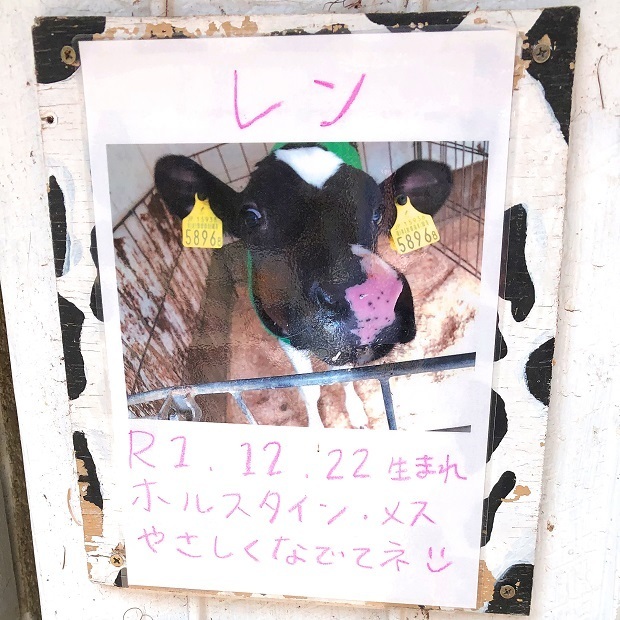 レン
5896
5896
R1.12.22生まれ
ホルスタイン・メス
やさしくなでてネ